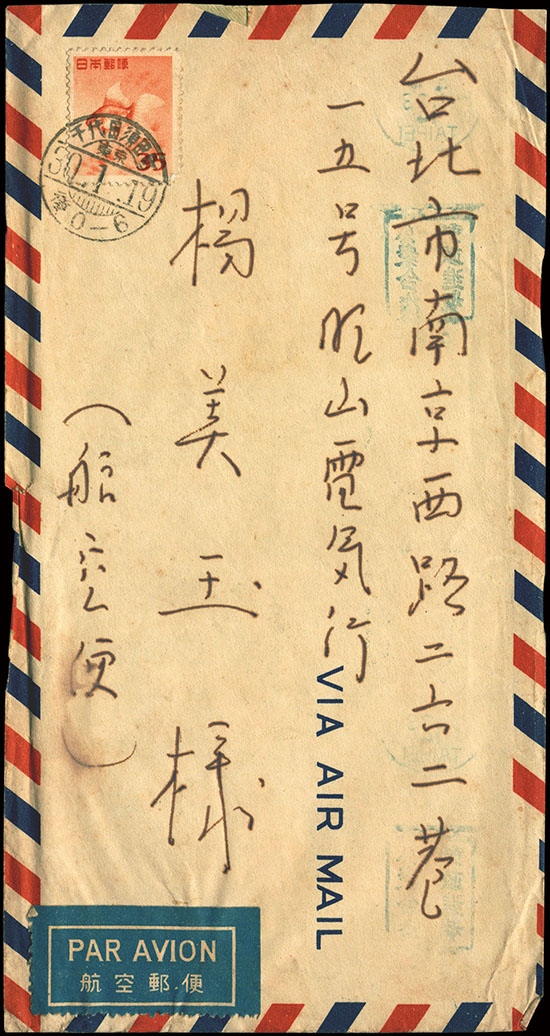 台北市南京西路二六二巷
一五号 昭山電気行
楊美玉様
(船空便)
日本郵便
千代田須田町
東京
30.1.19
后0-6
TAIPEI
VIA AIR MAIL
PAR AVION
航空郵便